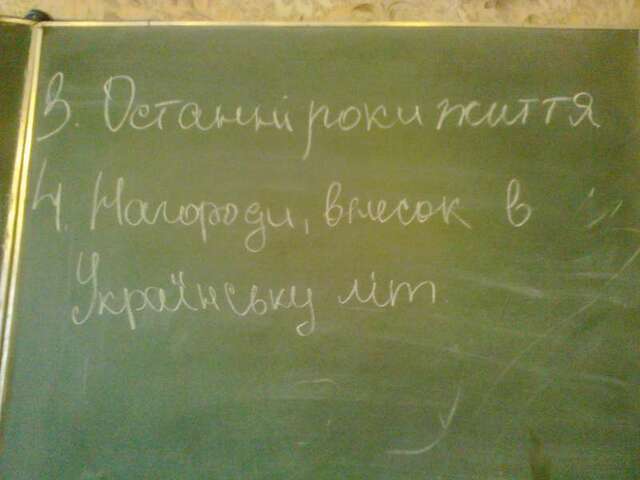 3. Останні роки життя
4. Нагороди, внесок в
Українську літ.